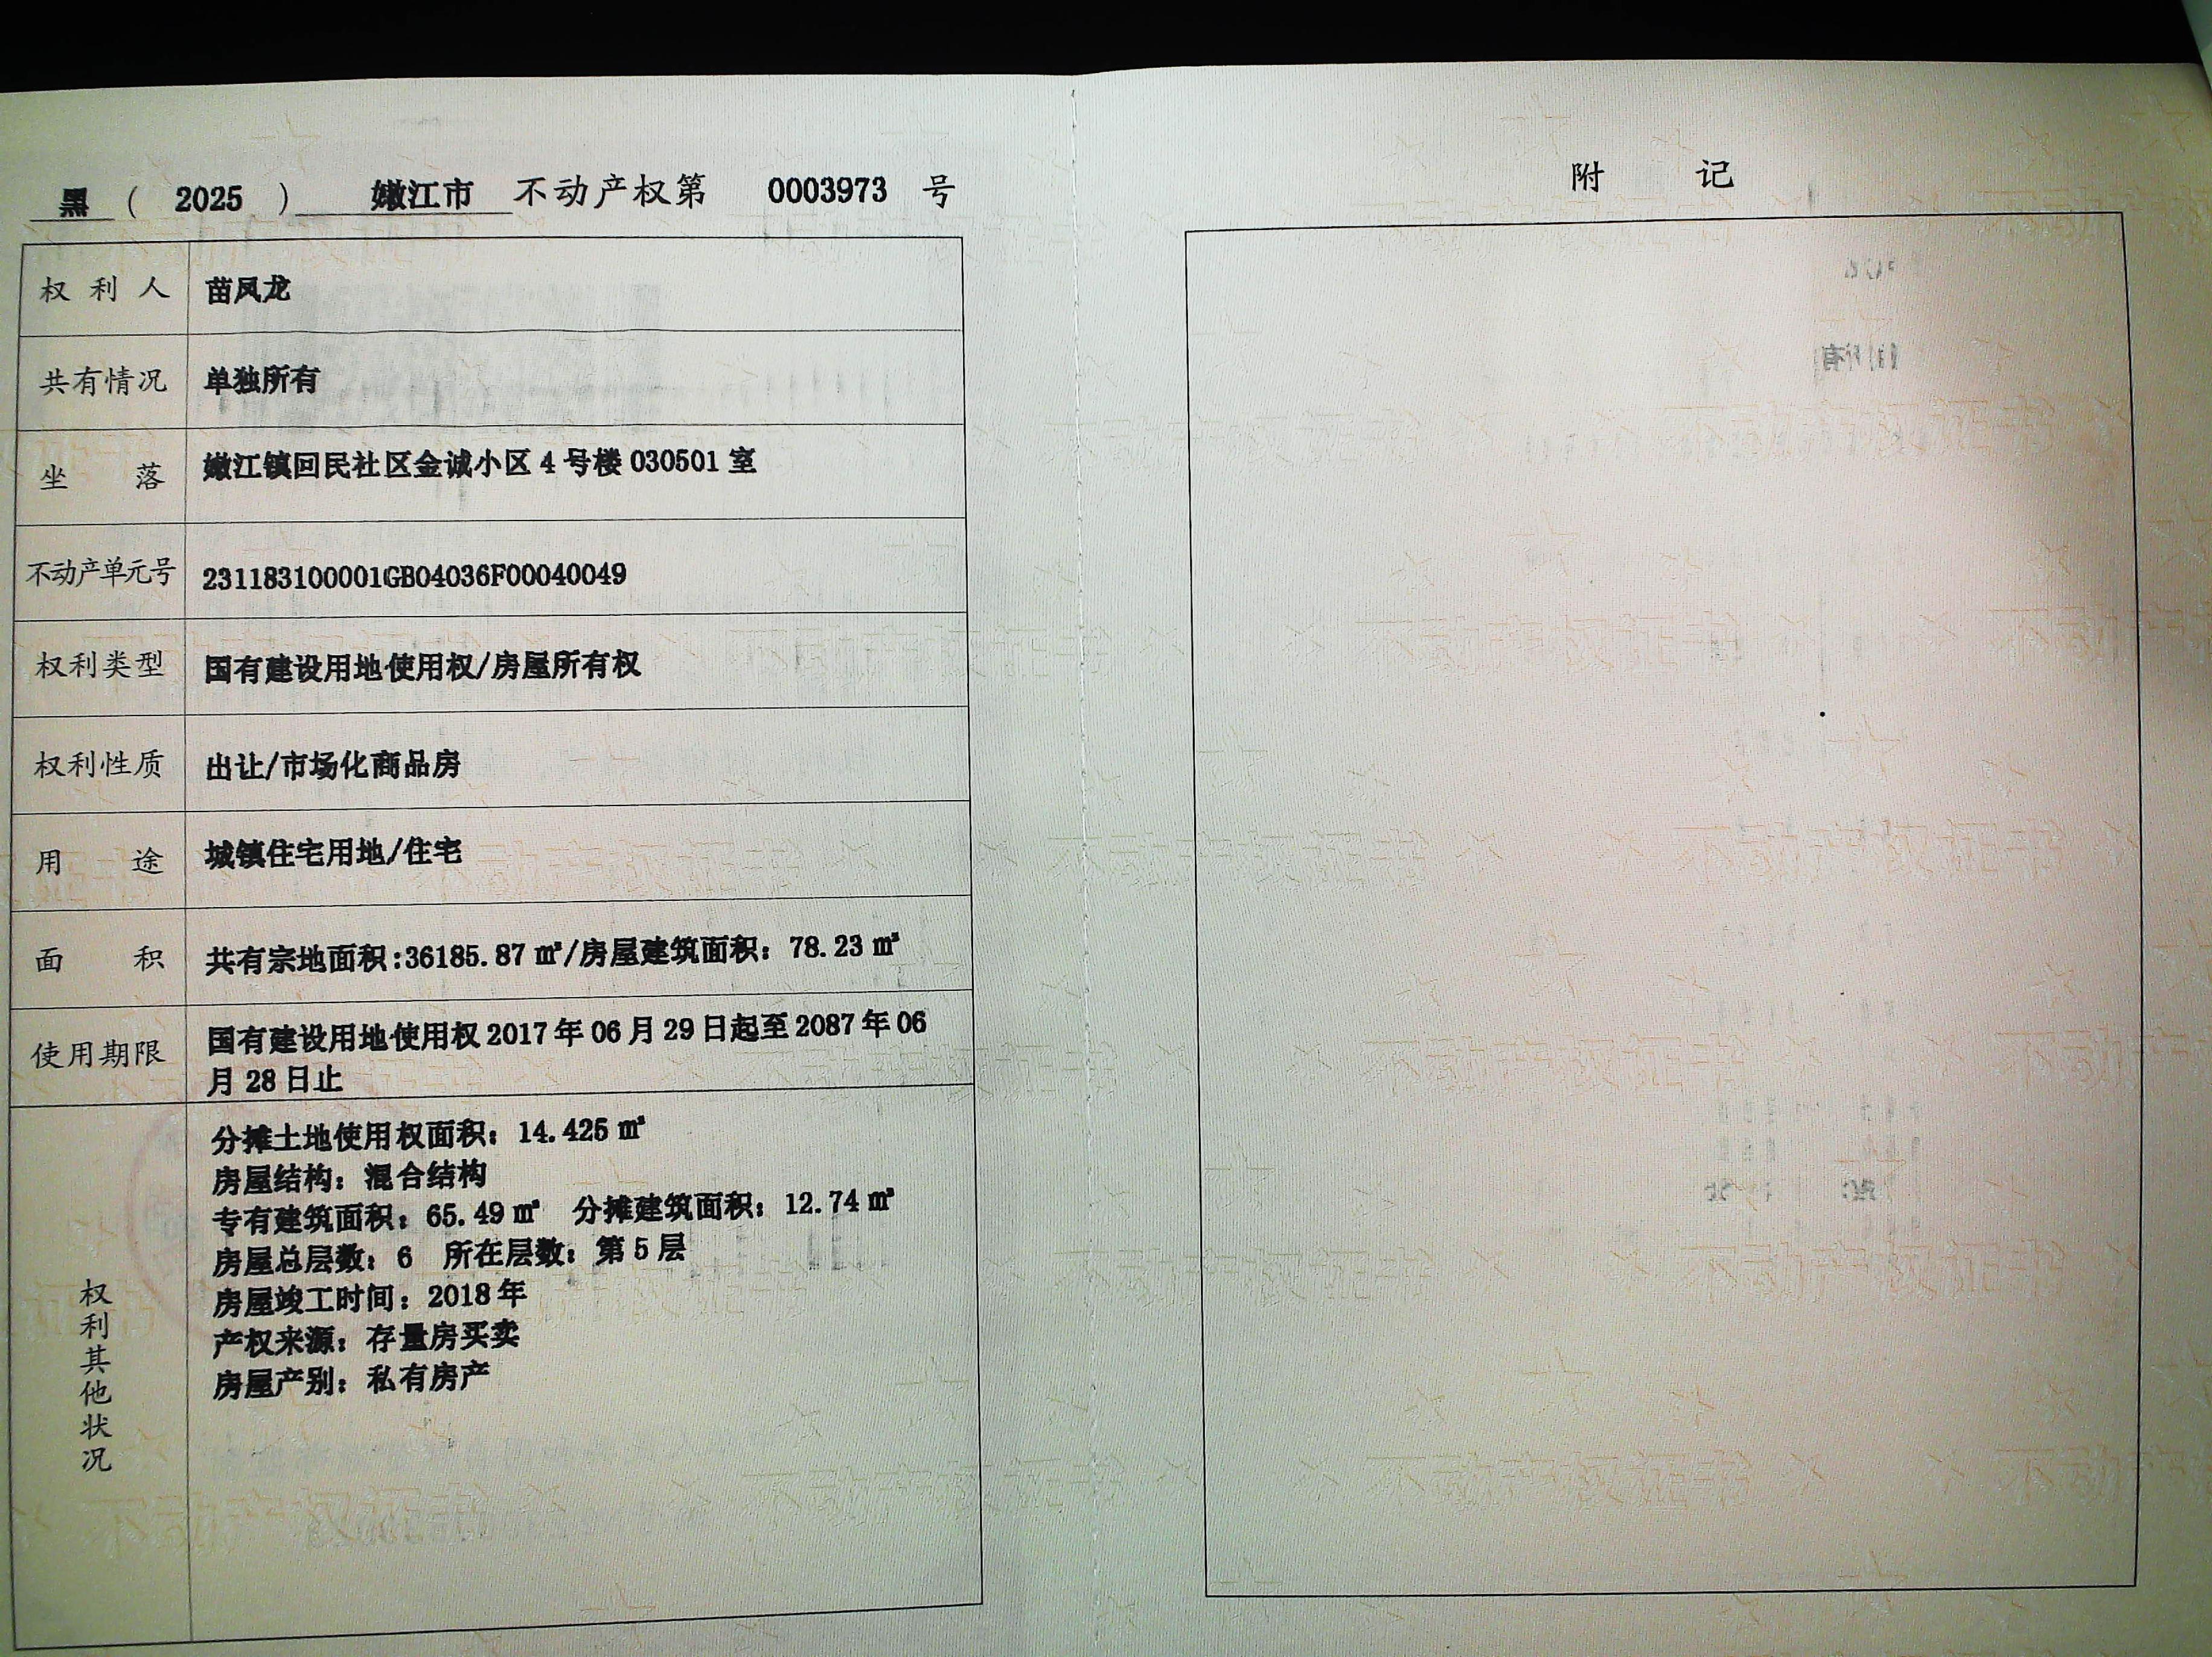 黑 ( 2025 ) 嫩江市 不动产权第 0003973 号
权利人 苗凤龙
共有情况 单独所有
坐落 嫩江镇回民社区金诚小区 4 号楼 030501 室
不动产单元号 231183100001GB04036F00040049
权利类型 国有建设用地使用权/房屋所有权
权利性质 出让/市场化商品房
用途 城镇住宅用地/住宅
面积 共有宗地面积:36185.87 ㎡/房屋建筑面积：78.23 ㎡
使用期限 国有建设用地使用权 2017 年 06 月 29 日起至 2087 年 06
月 28 日止
权利其他状况
分摊土地使用权面积：14.425 ㎡
房屋结构：混合结构
专有建筑面积：65.49 ㎡ 分摊建筑面积：12.74 ㎡
房屋总层数：6 所在层数：第 5 层
房屋竣工时间：2018 年
产权来源：存量房买卖
房屋产别：私有房产
附 记